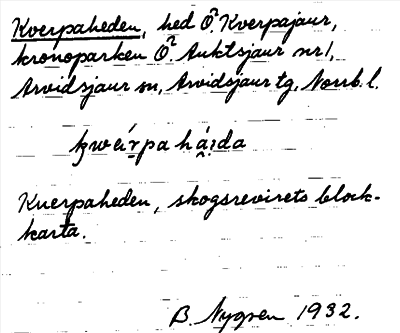 Kverpaheden, hed Ö. Kverpajaur,
kronoparken Ö. Auktsjaur nr 1,
Arvidsjaur sn, Arvidsjaur tg, Norrb. l.
Kuerpaheden, skogsrevirets block-
karta.
B. Nygren 1932.